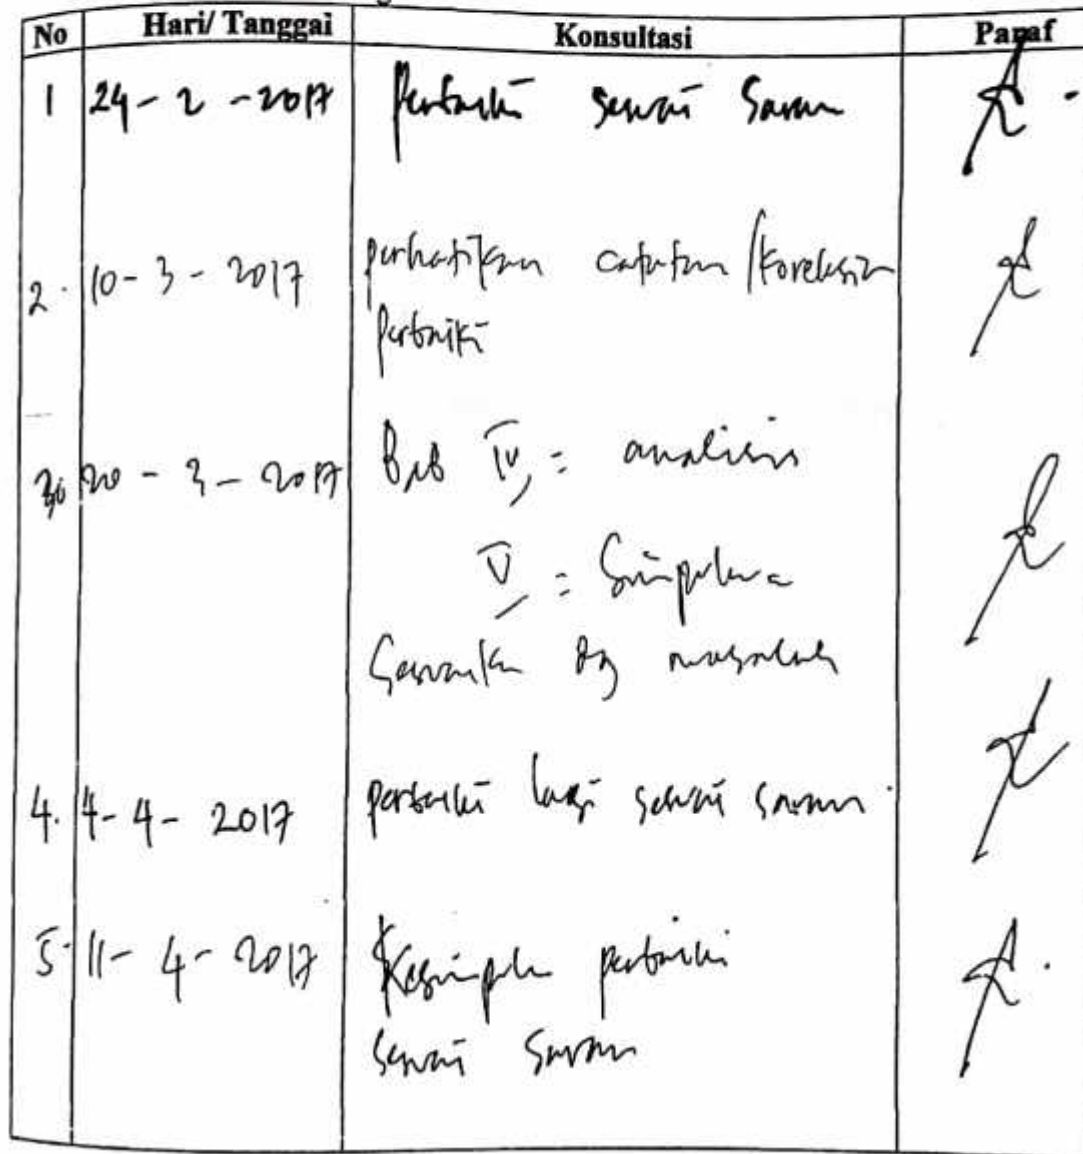 No Hari/ Tanggal Konsultasi Paraf
1 24 - 2 - 2017 perbaiki sesuai saran
2. 10 - 3 - 2017 perhatikan catatan / koreksian
perbaiki
3. 20 - 3 - 2017 Bab IV, = analisis
V = Simpulan
Sesuaikan dg masalah
4. 4 - 4 - 2017 perbaiki lagi sesuai saran.
5. 11 - 4 - 2017 Kesimpulan perbaiki
sesuai saran